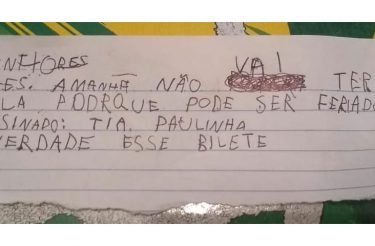 NHORES
ES. AMANHÃ NÃO VAI TER
LA PODRQUE PODE SER FERIADO
SINADO: TIA. PAULINHA
VERDADE ESSE BILETE